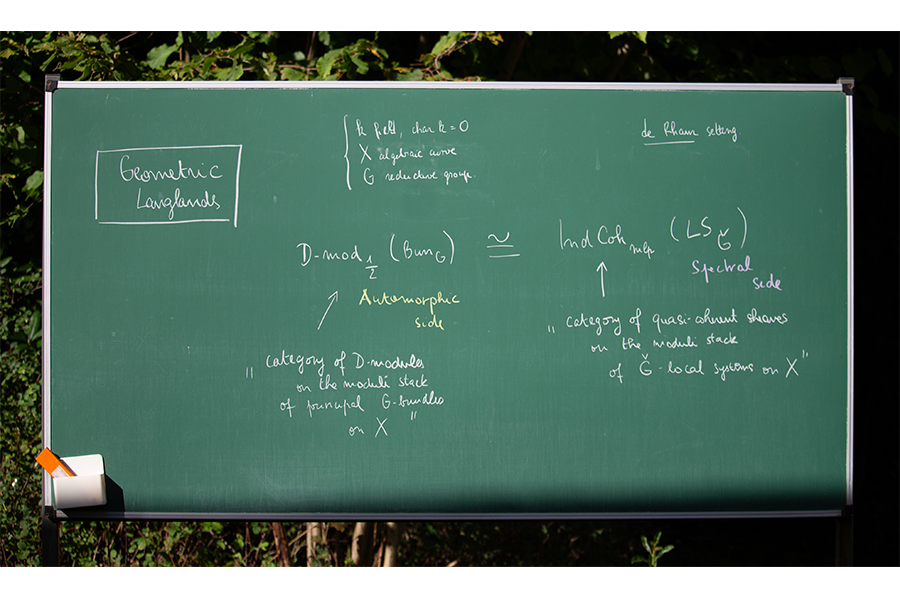 Geometric
Langlands
k field, char k = 0
X algebraic curve
G reductive group.
de Rham setting
D-mod_{1/2} (Bun_G) ≅ IndCoh_{nilp} (LS_Ǧ)
Automorphic
side
Spectral
side
" category of D-modules
on the moduli stack
of principal G-bundles
on X "
" category of quasi-coherent sheaves
on the moduli stack
of Ǧ-local systems on X "